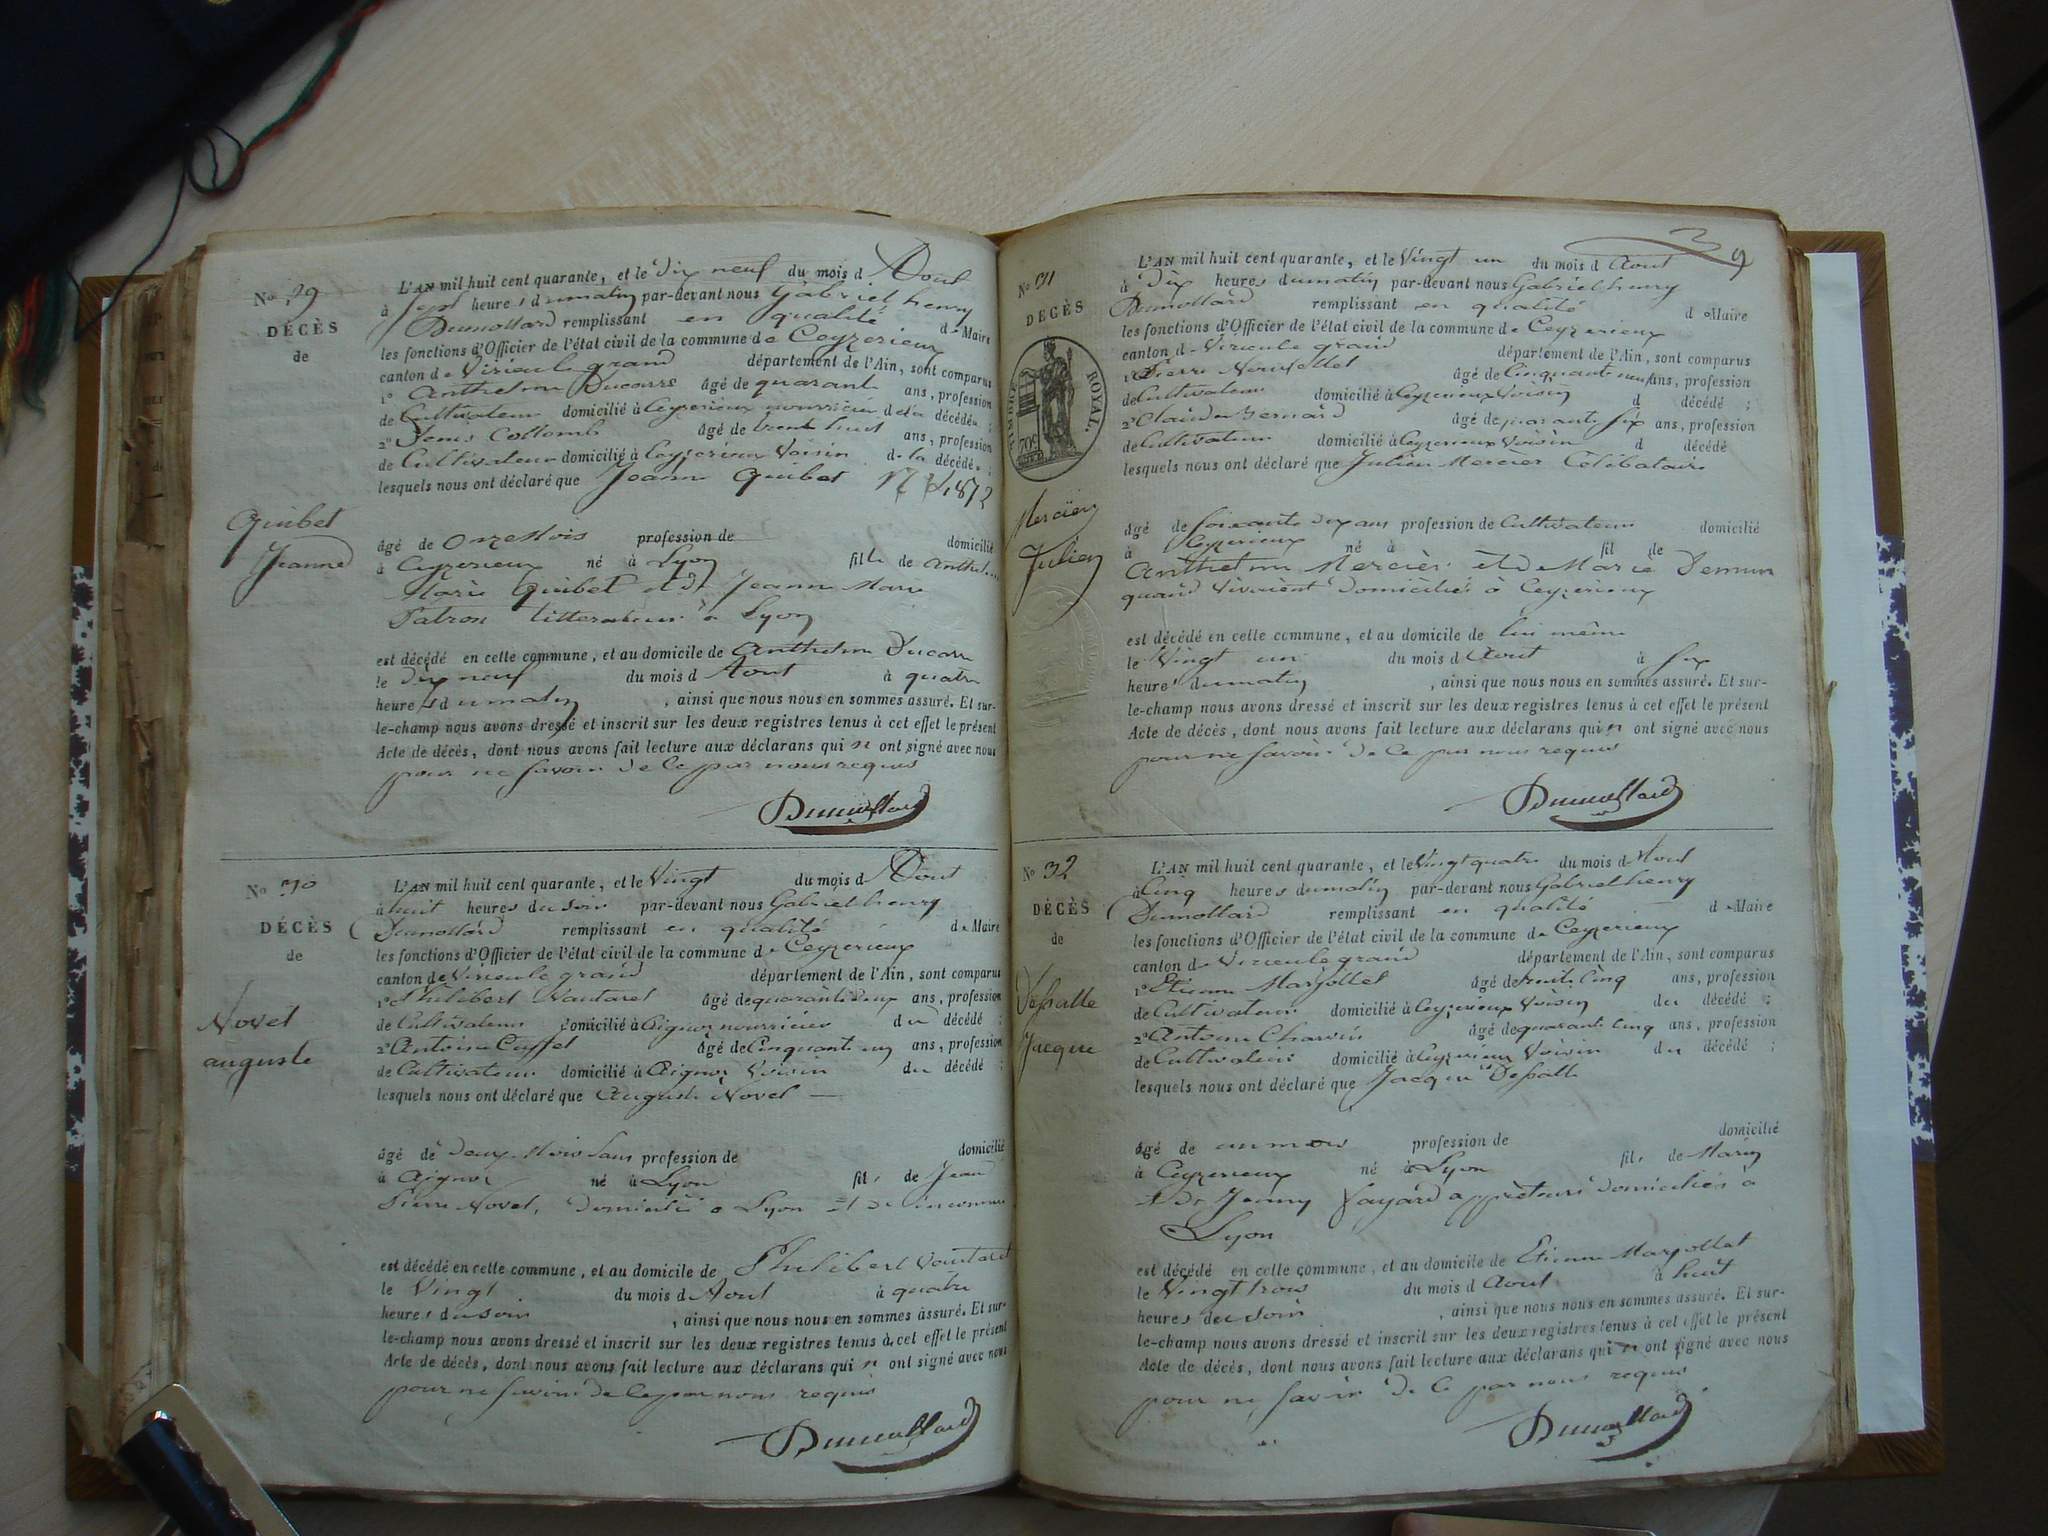 No 29
DÉCÈS
de
Quibet
Jeanne
L'AN mil huit cent quarante, et le dix neuf du mois d Aout
à sept heures dumatin par-devant nous Gabriel henry
Dumollard remplissant en qualité d Maire
les fonctions d'Officier de l'état civil de la commune de Ceyzerieux
canton de Virieulegrand département de l'Ain, sont comparus
1º Anthelme Ducarre âgé de quarante ans, profession
de Cultivateur domicilié à Ceyzerieux nourricier dela décédée ;
2º Denis Collomb âgé de trente huit ans, profession
de Cultivateur domicilié à Ceyzerieux Voisin de la décédée ;
lesquels nous ont déclaré que Jeanne Quibet
âgé de onze Mois profession de domicilié
à Ceyzerieux né à Lyon fille de Anthelme
Marie Quibet et d Jeanne Marie
Patron à Lyon
est décédé en cette commune, et au domicile de Anthelme Ducarre
le dix neuf du mois d Aout à quatre
heures dumatin , ainsi que nous nous en sommes assuré. Et sur-
le-champ nous avons dressé et inscrit sur les deux registres tenus à cet effet le présent
Acte de décès, dont nous avons fait lecture aux déclarans qui n ont signé avec nous
pour ne savoir de ce par nous requis
Dumollard
No 30
DÉCÈS
de
Novet
auguste
L'AN mil huit cent quarante, et le Vingt du mois d Aout
à huit heures du soir par-devant nous Gabriel henry
Dumollard remplissant en qualité de Maire
les fonctions d'Officier de l'état civil de la commune de Ceyzerieux
canton de Virieulegrand département de l'Ain, sont comparus
1º Philibert Vautaret âgé de quarante deux ans, profession
de Cultivateur domicilié à Aignoz nourricier du décédé ;
2º Antoine Cuffet âgé de Cinquante un ans, profession
de Cultivateur domicilié à Aignoz Voisin du décédé ;
lesquels nous ont déclaré que Auguste Novet
âgé de deux Mois sans profession de domicilié
à Aignoz né à Lyon fils de Jean
Pierre Novet, domicilié a Lyon et de inconnue
est décédé en cette commune, et au domicile de Philibert Vautaret
le Vingt du mois d Aout à quatre
heures du soir , ainsi que nous nous en sommes assuré. Et sur-
le-champ nous avons dressé et inscrit sur les deux registres tenus à cet effet le présent
Acte de décès, dont nous avons fait lecture aux déclarans qui n ont signé avec nous
pour ne savoir de ce par nous requis
Dumollard
39
No 31
DÉCÈS
TIMBRE ROYAL
70c
Mercier
Julien
L'AN mil huit cent quarante, et le Vingt un du mois d Aout
à dix heures dumatin par-devant nous Gabriel henry
Dumollard remplissant en qualité d Maire
les fonctions d'Officier de l'état civil de la commune de Ceyzerieux
canton d Virieulegrand département de l'Ain, sont comparus
1º Pierre Nouvellet âgé de Cinquante neuf ans, profession
de Cultivateur domicilié à Ceyzerieux Voisin d décédé ;
2º Claude Bernard âgé de quarante six ans, profession
de Cultivateur domicilié à Ceyzerieux Voisin d décédé
lesquels nous ont déclaré que Julien Mercier Célibataire
âgé de soixante dix ans profession de Cultivateur domicilié
à Ceyzerieux né à fil de
Anthelme Mercier et de Marie
quand vivoient domiciliés à Ceyzerieux
est décédé en cette commune, et au domicile de lui même
le Vingt un du mois d Aout à six
heures dumatin , ainsi que nous nous en sommes assuré. Et sur-
le-champ nous avons dressé et inscrit sur les deux registres tenus à cet effet le présent
Acte de décès, dont nous avons fait lecture aux déclarans qui n ont signé avec nous
pour ne savoir de ce par nous requis
Dumollard
No 32
DÉCÈS
de
Depalle
Jacque
L'AN mil huit cent quarante, et le Vingt quatre du mois d Aout
à Cinq heures dumatin par-devant nous Gabriel henry
Dumollard remplissant en qualité d Maire
les fonctions d'Officier de l'état civil de la commune de Ceyzerieux
canton de Virieulegrand département de l'Ain, sont comparus
1º Etienne Marjollet âgé de trente Cinq ans, profession
de Cultivateur domicilié à Ceyzerieux Voisin du décédé ;
2º Antoine Charvin âgé de quarante Cinq ans, profession
de Cultivateur domicilié à Ceyzerieux Voisin du décédé ;
lesquels nous ont déclaré que Jacque Depalle
âgé de un mois profession de domicilié
à Ceyzerieux né à Lyon fils de Marin
et de Jenny Fayard domiciliés a
Lyon
est décédé en cette commune, et au domicile de Etienne Marjollet
le Vingt trois du mois d Aout à huit
heures du soir , ainsi que nous nous en sommes assuré. Et sur-
le-champ nous avons dressé et inscrit sur les deux registres tenus à cet effet le présent
Acte de décès, dont nous avons fait lecture aux déclarans qui n ont signé avec nous
pour ne savoir de ce par nous requis
Dumollard